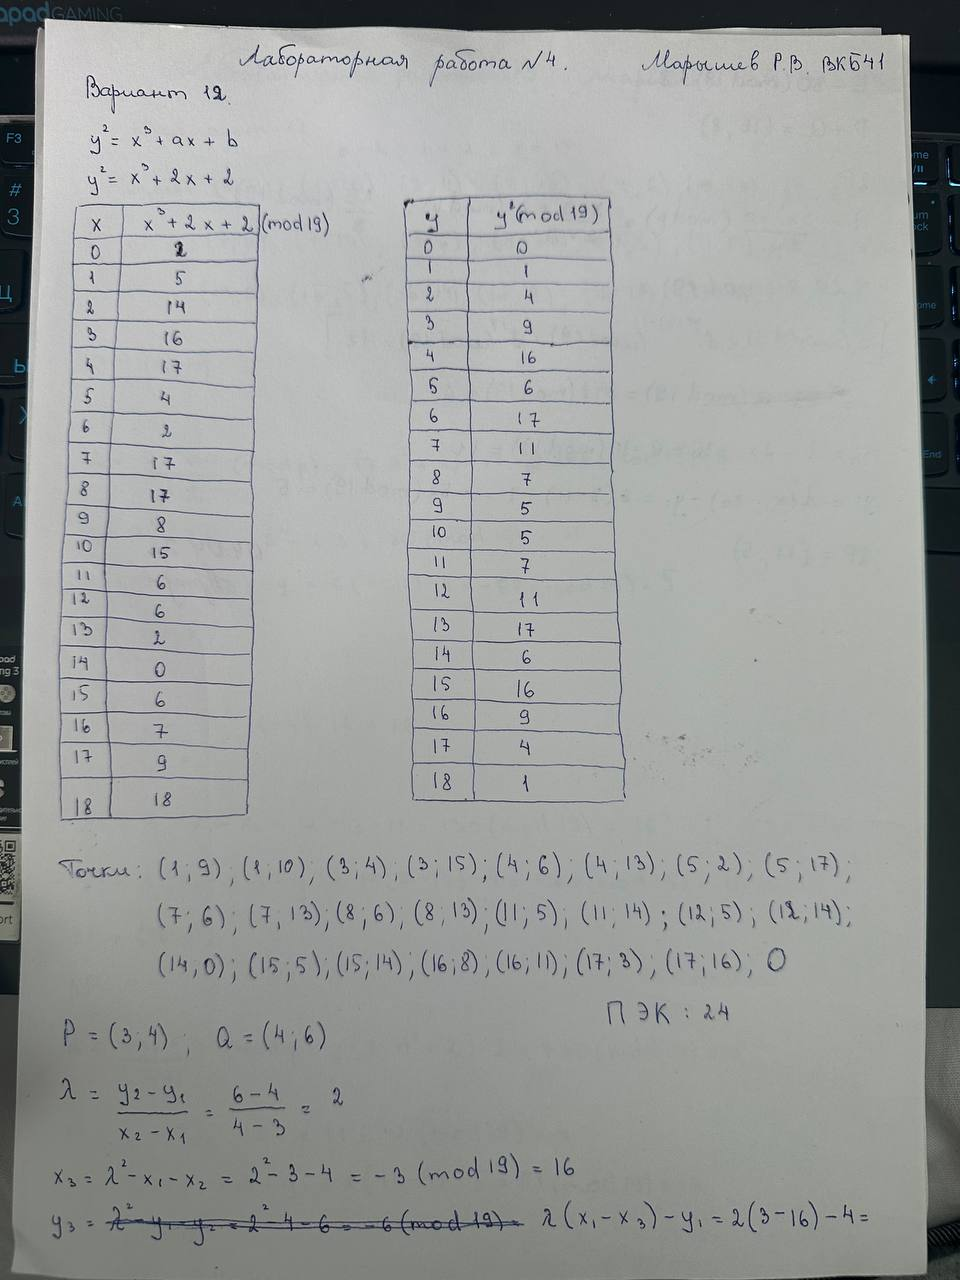 Лабораторная работа №4. Марышев Р.В. ВКБ41
Вариант 12.
y² = x³ + ax + b
y² = x³ + 2x + 2
x | x³ + 2x + 2 (mod 19)
0 | 2
1 | 5
2 | 14
3 | 16
4 | 17
5 | 4
6 | 2
7 | 17
8 | 17
9 | 8
10 | 15
11 | 6
12 | 6
13 | 2
14 | 0
15 | 6
16 | 7
17 | 9
18 | 18
y | y² (mod 19)
0 | 0
1 | 1
2 | 4
3 | 9
4 | 16
5 | 6
6 | 17
7 | 11
8 | 7
9 | 5
10 | 5
11 | 7
12 | 11
13 | 17
14 | 6
15 | 16
16 | 9
17 | 4
18 | 1
Точки: (1; 9); (1; 10); (3; 4); (3; 15); (4; 6); (4; 13); (5; 2); (5; 17);
(7; 6); (7; 13); (8; 6); (8; 13); (11; 5); (11; 14); (12; 5); (12; 14);
(14, 0); (15; 5); (15; 14); (16; 8); (16; 11); (17; 3); (17; 16); O
П ЭК: 24
P = (3; 4); Q = (4; 6)
λ = (y₂ - y₁)/(x₂ - x₁) = (6 - 4)/(4 - 3) = 2
x₃ = λ² - x₁ - x₂ = 2² - 3 - 4 = -3 (mod 19) = 16
y₃ = λ² - y₁ - y₂ = 2² - 4 - 6 = -6 (mod 19) = λ(x₁ - x₃) - y₁ = 2(3 - 16) - 4 =